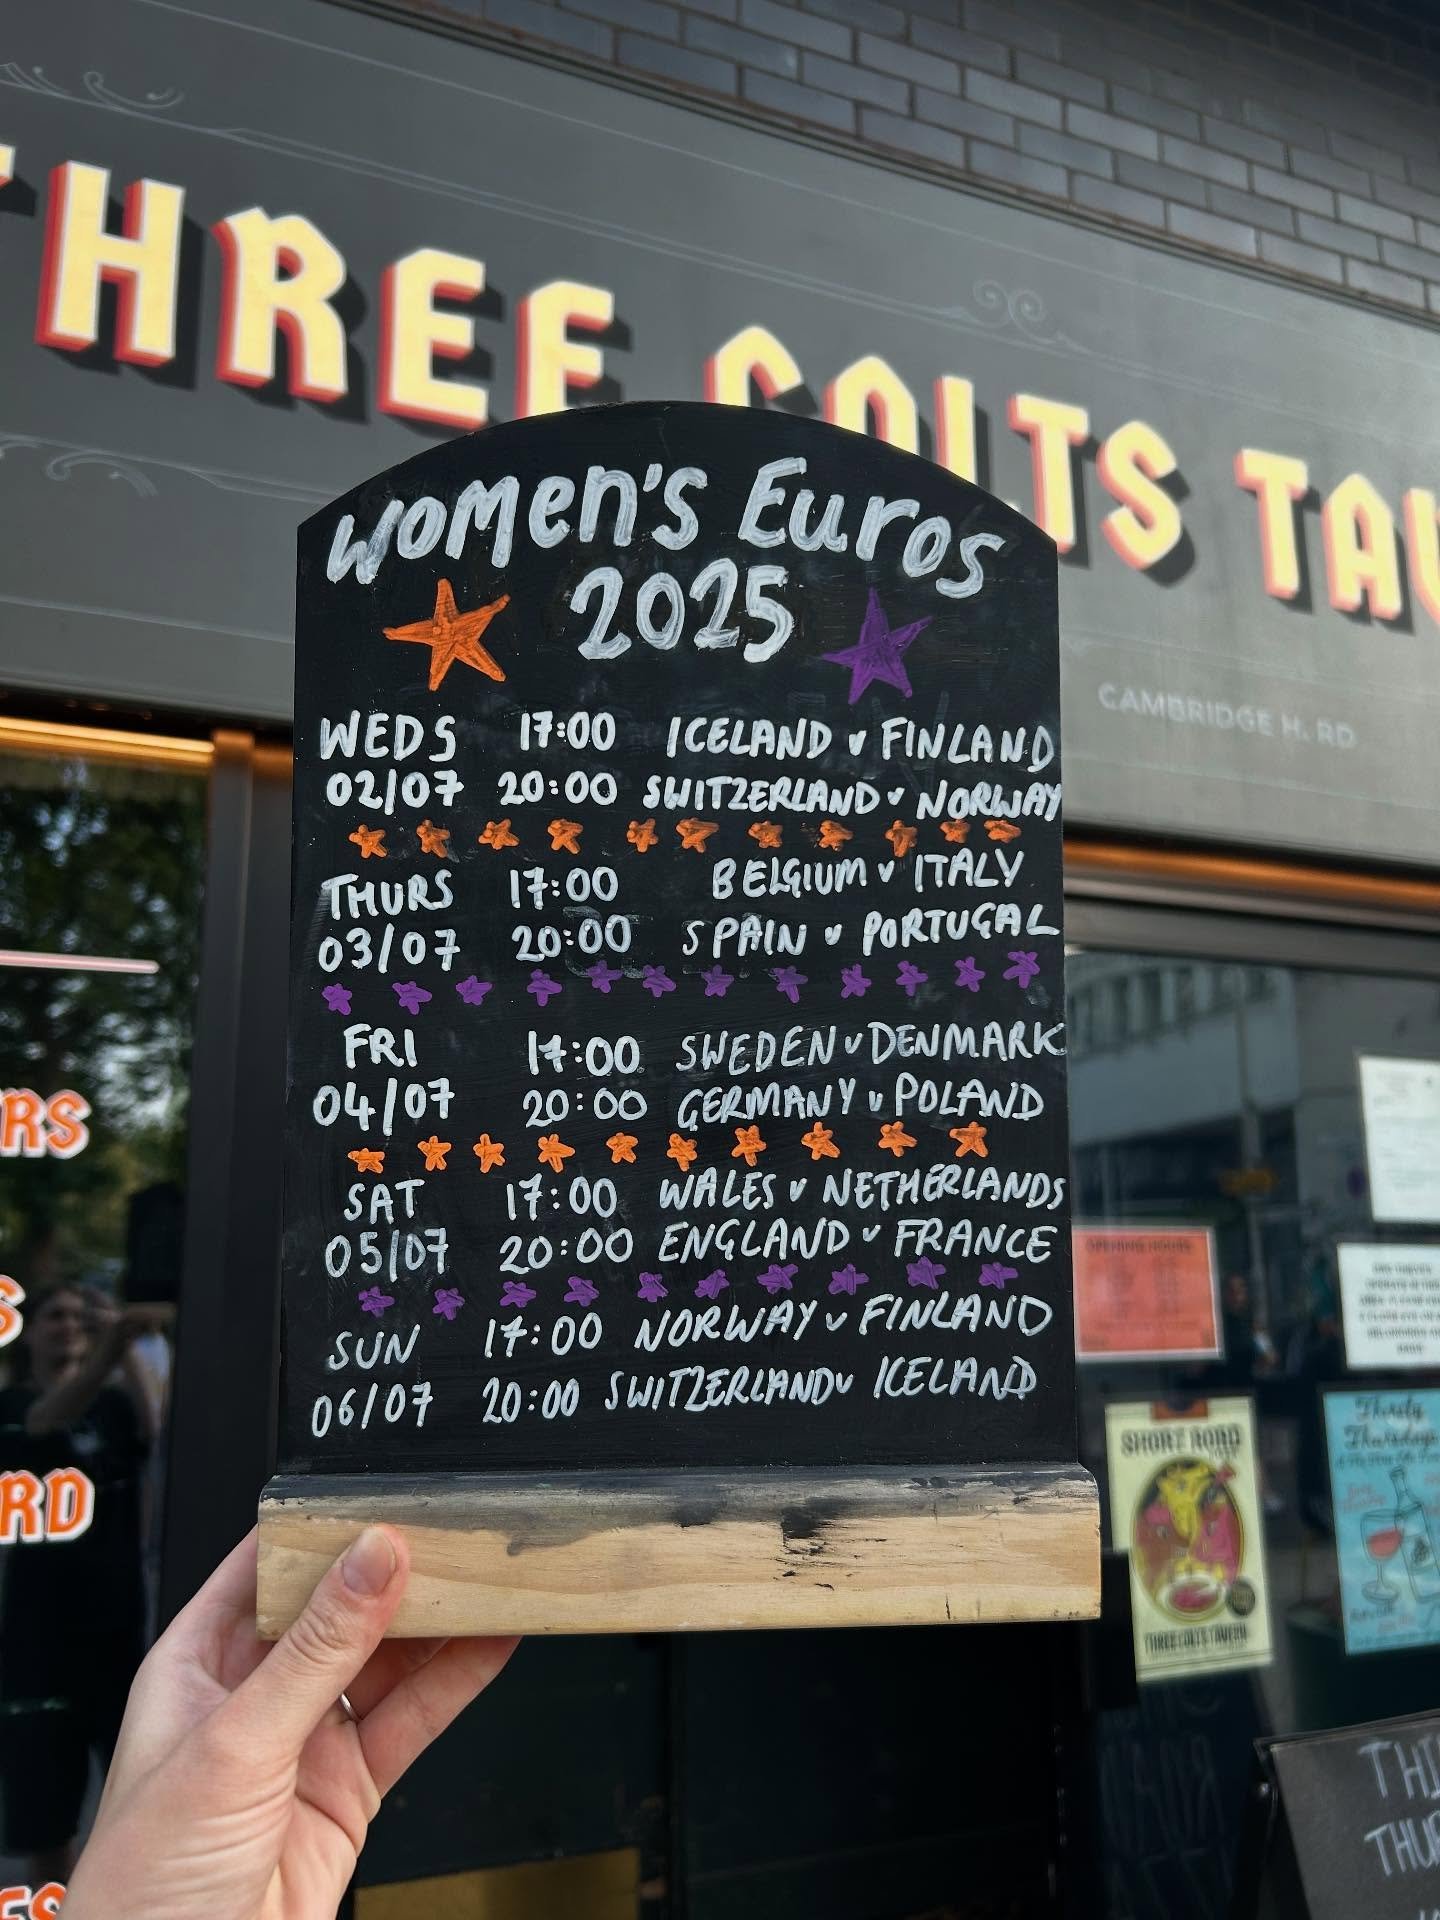 THREE COLTS TAV
CAMBRIDGE H. RD
Women's Euros
2025
WEDS 17:00 ICELAND v FINLAND
02/07 20:00 SWITZERLAND v NORWAY
THURS 17:00 BELGIUM v ITALY
03/07 20:00 SPAIN v PORTUGAL
FRI 17:00 SWEDEN v DENMARK
04/07 20:00 GERMANY v POLAND
SAT 17:00 WALES v NETHERLANDS
05/07 20:00 ENGLAND v FRANCE
SUN 17:00 NORWAY v FINLAND
06/07 20:00 SWITZERLAND v ICELAND
RS
S
RD
ES
OPENING HOURS
SHORT ROAD
THREE COLTS TAVERN
Thirsty
Thursdays
THI
THUR